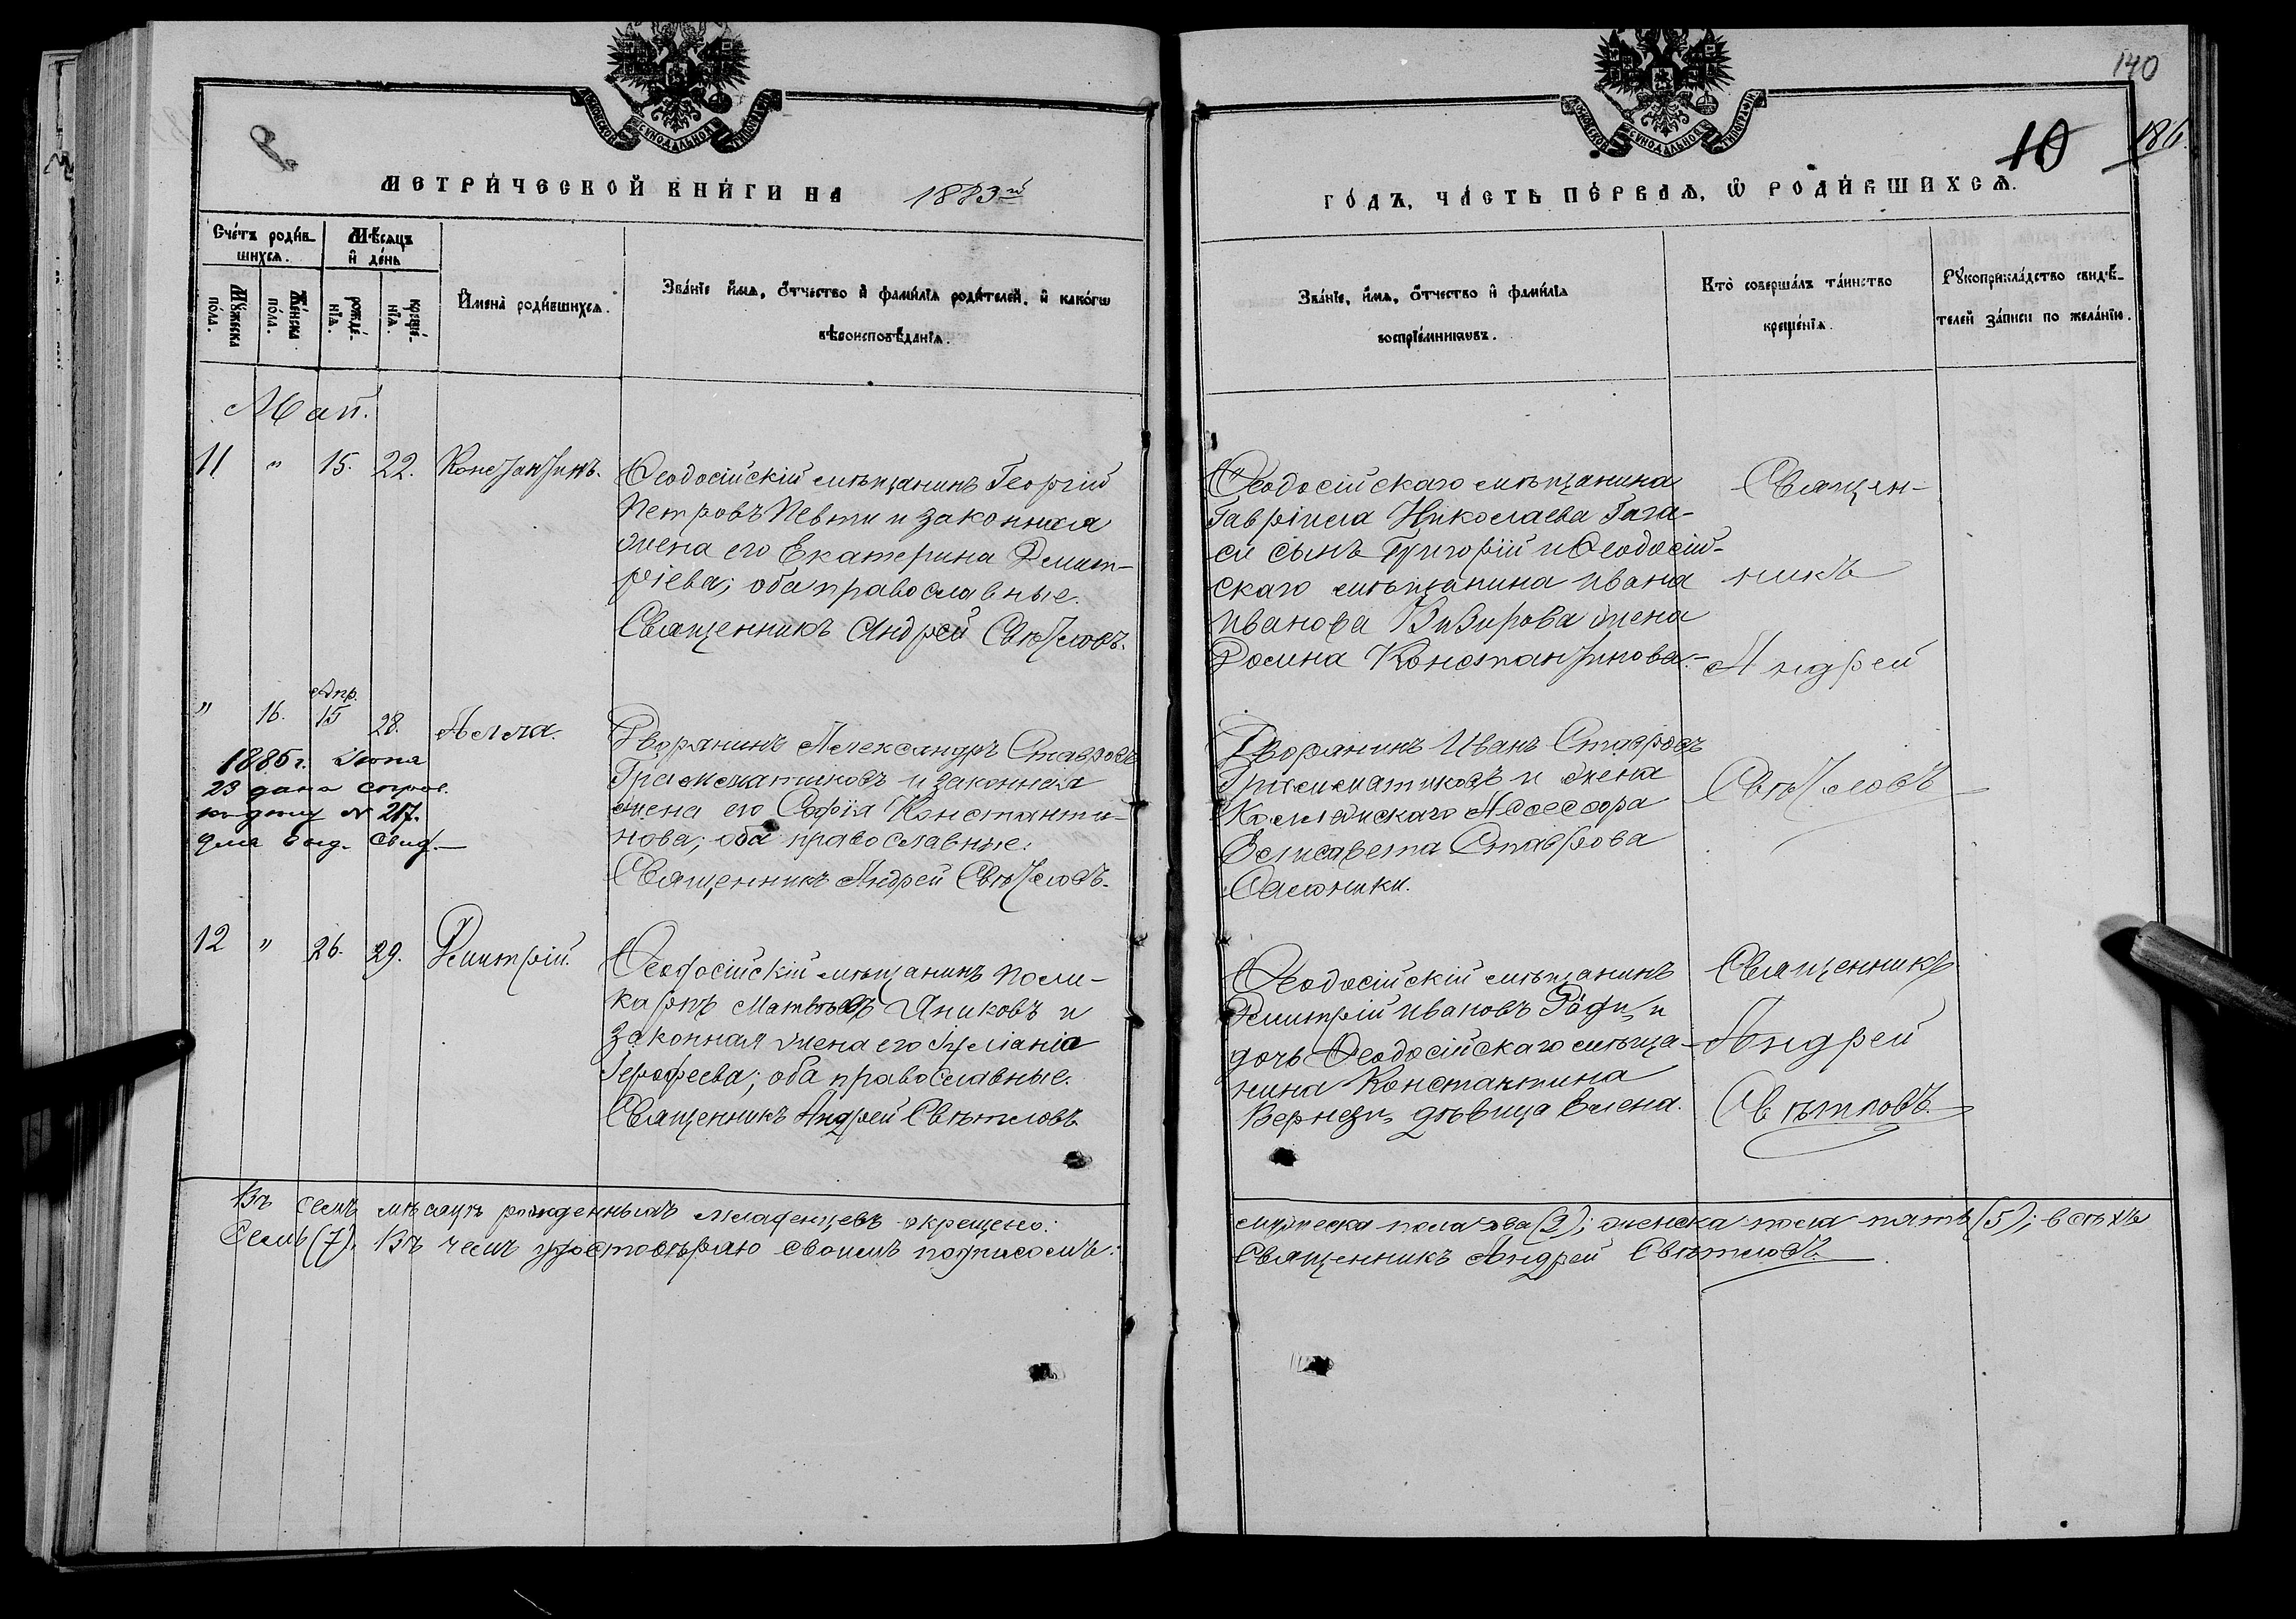 140
10
186
МОСКОВСКОЙ СѴНОДАЛЬНОЙ ТИПОГРАФІИ
МОСКОВСКОЙ СѴНОДАЛЬНОЙ ТИПОГРАФІИ
МЕТРИ́ЧЕСКОЙ КНИ́ГИ НА 1883й
ГО́ДЪ, ЧА́СТЬ ПЕ́РВАѦ, Ѡ РОДИ́ВШИХСѦ.
Сче́тъ роди́в-
шихсѧ.
Мѣ́сѧцъ
и҆ де́нь
Мꙋ́жеска по́ла.
Же́нска по́ла.
рожде́-нїѧ.
креще́-нїѧ.
И҆мена̀ роди́вшихсѧ.
Зва́нїе и҆́мѧ, ѻ҆́тчество и҆ фами́лїѧ роди́телей, и҆ како́гѡ
вѣроисповѣ́данїѧ.
Зва́нїе, и҆́мѧ, ѻ҆́тчество и҆ фами́лїѧ
воспрїе́мникѡвъ.
Кто̀ соверша́лъ та́инство
креще́нїѧ.
Рꙋкоприкла́дство свидѣ́-
телей за́писи по жела́нїю.
Май.
11 " 15. 22. Константинъ.
Ѳеодосійскій мѣщанинъ Георгій
Петровъ Певти и законная
жена его Екатерина Димит-
ріева; оба православные.
Священникъ Андрей Свѣтловъ.
Ѳеодосійскаго мѣщанина
Гавріила Николаева Гага-
си сынъ Григорій и Ѳеодосій-
скаго мѣщанина Ивана
Иванова Визирова жена
Домна Константинова.
Священ-
никъ
Андрей
Свѣтловъ
" 16. Апр. 15 28. Алла.
1886 г. Іюня
23 дана справ.
№ 217.
для выд. свид.
Дворянинъ Александръ Ставровъ
Грамматиковъ и законная
жена его Софія Константи-
нова; оба православные.
Священникъ Андрей Свѣтловъ.
Дворянинъ Иванъ Ставровъ
Грамматиковъ и жена
Коллежскаго Ассессора
Елисавета Ставрова
12 " 26. 29. Димитрій.
Ѳеодосійскій мѣщанинъ Поли-
карпъ Матвѣевъ Яниковъ и
законная жена его Іуліанія
Іероѳеева; оба православные.
Священникъ Андрей Свѣтловъ.
Ѳеодосійскій мѣщанинъ
Димитрій Ивановъ Ради и
дочь Ѳеодосійскаго мѣща-
нина Константина
Вернези дѣвица Елена.
Священникъ
Андрей
Свѣтловъ.
Въ семъ мѣсяцѣ рожденныхъ младенцевъ окрещено:
мужеска пола два (2); женска пола пять (5); всѣхъ
Семь (7). Въ чемъ удостовѣряю своимъ подписомъ:
Священникъ Андрей Свѣтловъ.